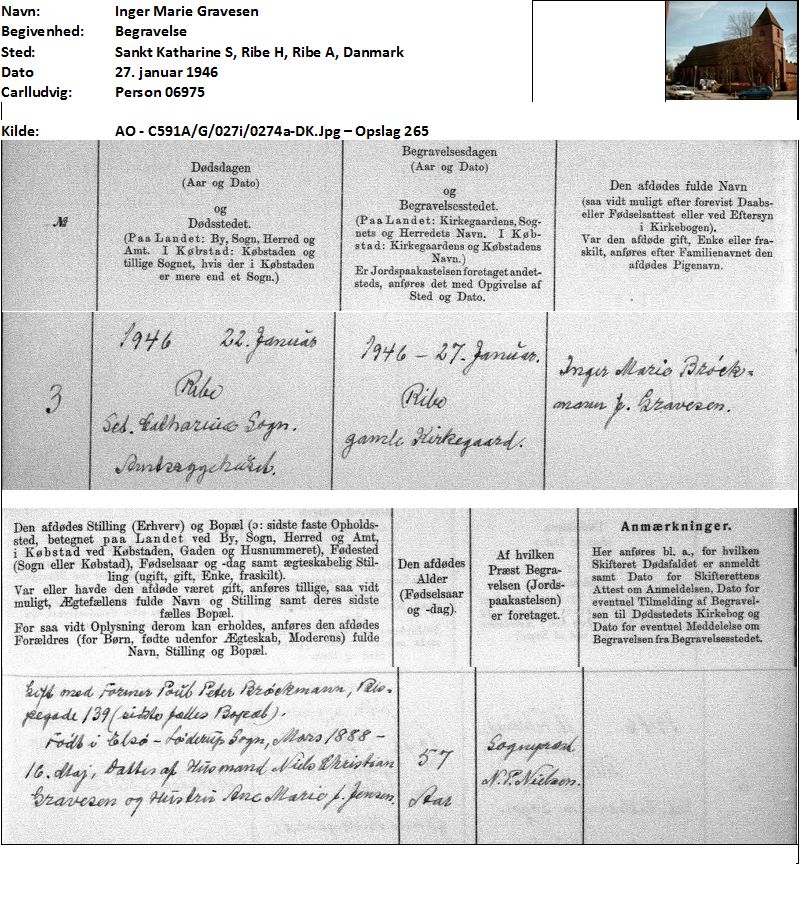 Navn: Inger Marie Gravesen
Begivenhed: Begravelse
Sted: Sankt Katharine S, Ribe H, Ribe A, Danmark
Dato 27. januar 1946
Carlludvig: Person 06975
Kilde: AO - C591A/G/027i/0274a-DK.Jpg – Opslag 265
№
Dødsdagen
(Aar og Dato)
og
Dødsstedet.
(Paa Landet: By, Sogn, Herred og
Amt. I Købstad: Købstaden og
tillige Sognet, hvis der i Købstaden
er mere end et Sogn.)
Begravelsesdagen
(Aar og Dato)
og
Begravelsesstedet.
(Paa Landet: Kirkegaardens, Sog-
nets og Herredets Navn. I Køb-
stad: Kirkegaardens og Købstadens
Navn.)
Er Jordspaakastelsen foretaget andet-
steds, anføres det med Opgivelse af
Sted og Dato.
Den afdødes fulde Navn
(saa vidt muligt efter forevist Daabs-
eller Fødselsattest eller ved Eftersyn
i Kirkebogen).
Var den afdøde gift, Enke eller fra-
skilt, anføres efter Familienavnet den
afdødes Pigenavn.
3
1946 22. Januar
Ribe
Sct. Catharinæ Sogn.
Amtssygehuset.
1946 – 27. Januar.
Ribe
gamle Kirkegaard.
Inger Marie Bröck-
mann f. Gravesen.
Den afdødes Stilling (Erhverv) og Bopæl (ɔ: sidste faste Opholds-
sted, betegnet paa Landet ved By, Sogn, Herred og Amt,
i Købstad ved Købstaden, Gaden og Husnummeret), Fødested
(Sogn eller Købstad), Fødselsaar og -dag samt ægteskabelig Stil-
ling (ugift, gift, Enke, fraskilt).
Var eller havde den afdøde været gift, anføres tillige, saa vidt
muligt, Ægtefællens fulde Navn og Stilling samt deres sidste
fælles Bopæl.
For saa vidt Oplysning derom kan erholdes, anføres den afdødes
Forældres (for Børn, fødte udenfor Ægteskab, Moderens) fulde
Navn, Stilling og Bopæl.
Den afdødes
Alder
(Fødselsaar
og -dag).
Af hvilken
Præst Begra-
velsen (Jords-
paakastelsen)
er foretaget.
Anmærkninger.
Her anføres bl. a., for hvilken
Skifteret Dødsfaldet er anmeldt
samt Dato for Skifterettens
Attest om Anmeldelsen, Dato for
eventuel Tilmelding af Begravel-
sen til Dødsstedets Kirkebog og
Dato for eventuel Meddelelse om
Begravelsen fra Begravelsesstedet.
Gift med Former Poul Peter Bröckmann,
139 (sidste fælles Bopæl).
Født i Elsø – Sogn, Mors 1888 –
16. Maj, Datter af Husmand Niels Christian
Gravesen og Hustru Ane Marie f. Jensen.
57
Aar
Sognepræst
N. P. Nielsen.